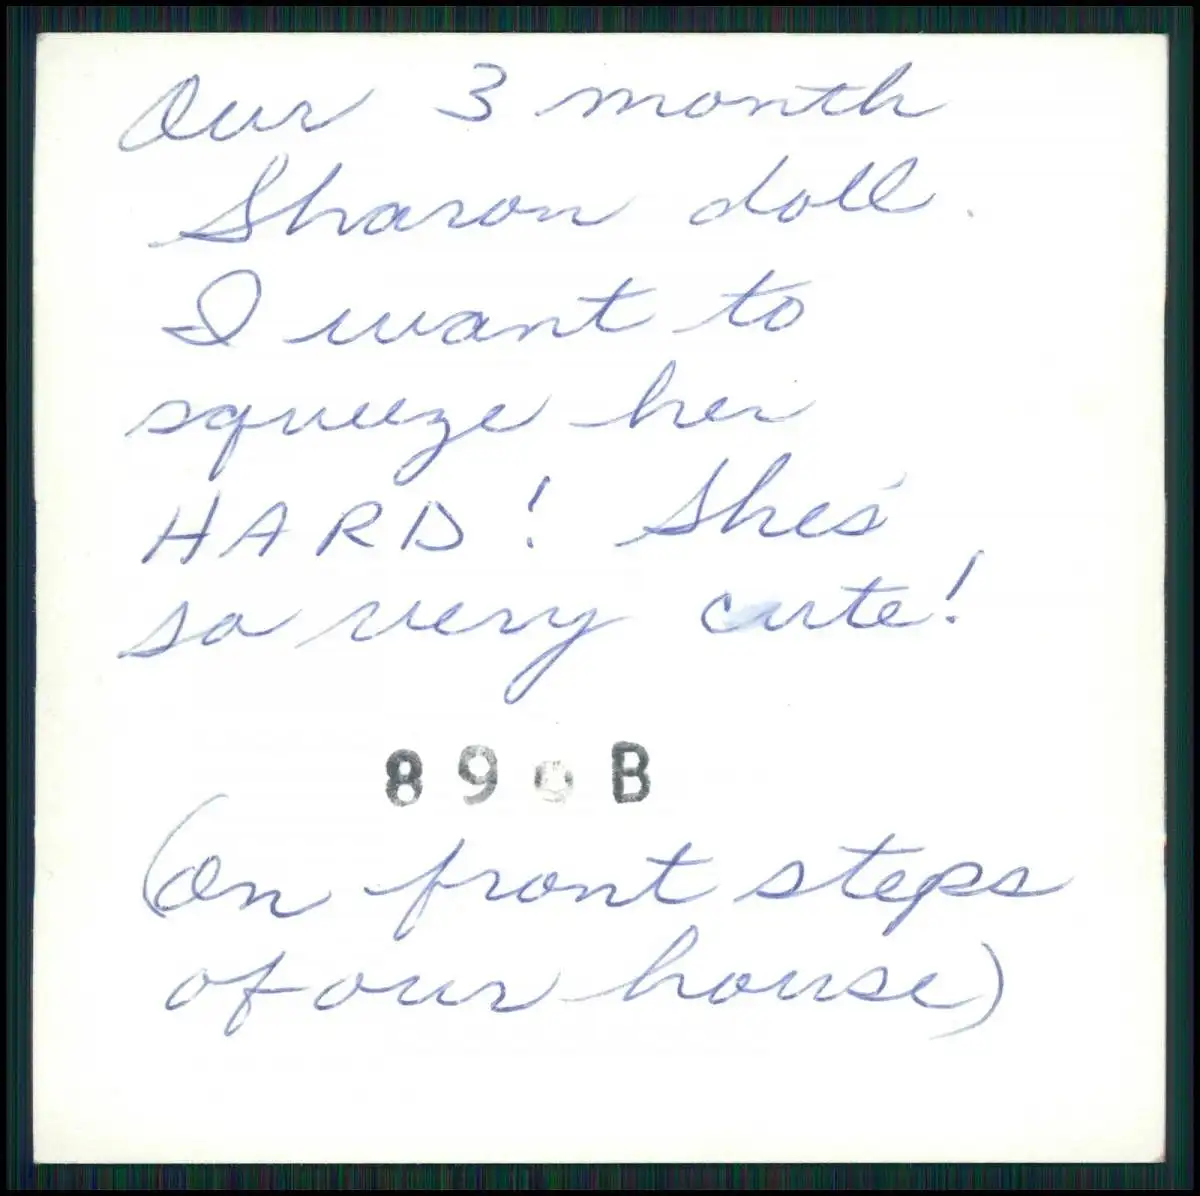 Our 3 month
Sharon doll.
I want to
squeeze her
HARD! She's
so very cute!
89 B
(On front steps
of our house)